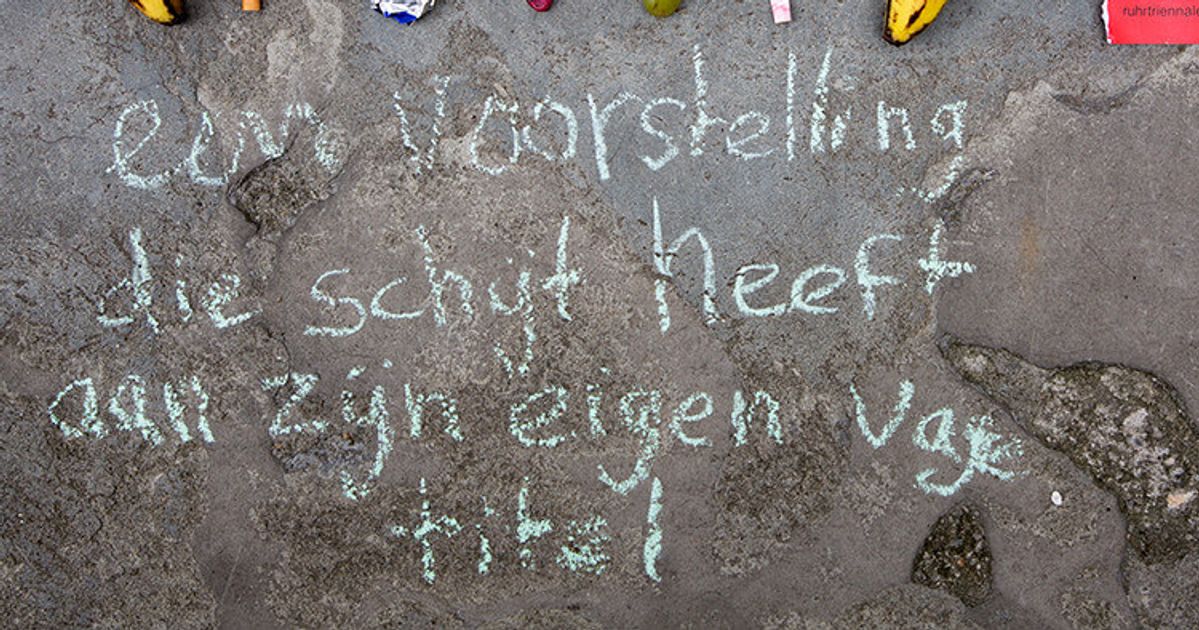 ruhrtriennale
een voorstelling
die schijt heeft
aan zijn eigen vage
titel